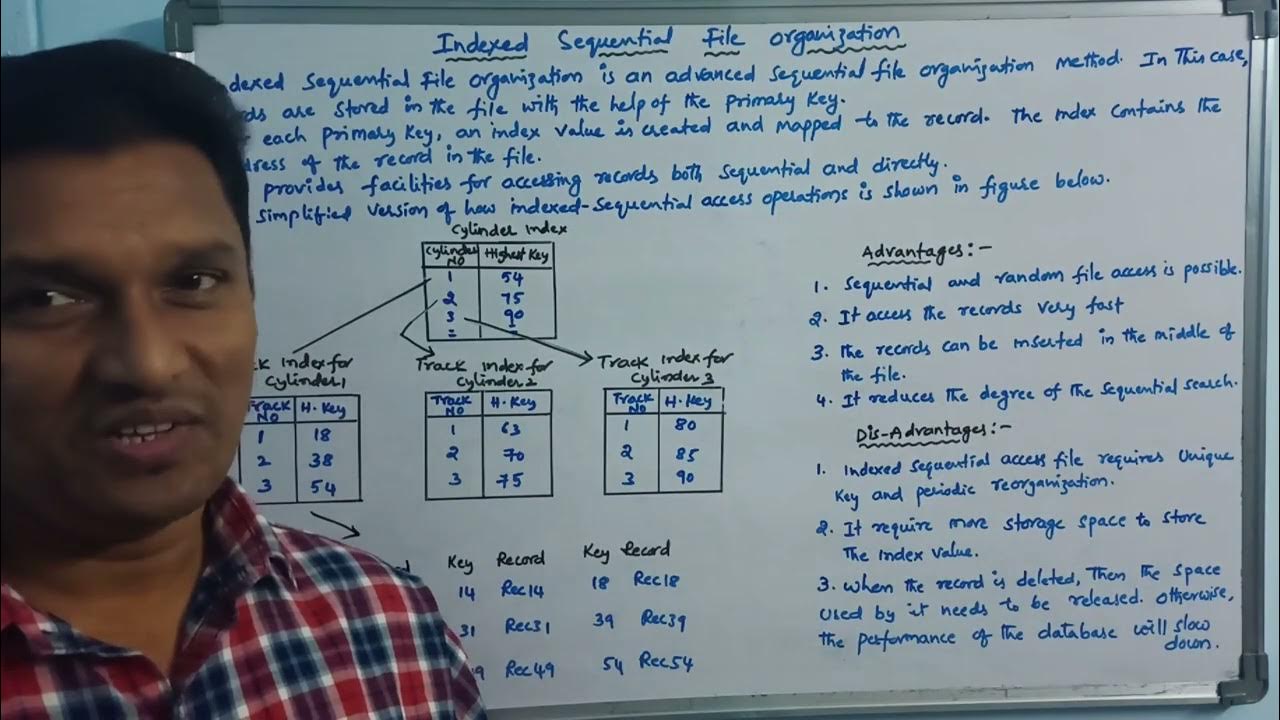 Indexed Sequential File Organization
dexed Sequential File organization is an advanced Sequential file organization method. In This case,
ds are stored in the file with the help of the primary Key.
each primary Key, an index value is created and mapped to the record. The index contains the
dress of the record in the file.
provides facilities for accessing records both sequential and directly.
simplified version of how indexed-sequential access operations is shown in figure below.
Cylinder Index
Cylinder NO Highest Key
1 54
2 75
3 90
= =
ck Index for Cylinder 1
Track NO H. Key
1 18
2 38
3 54
Track Index for Cylinder 2
Track NO H. Key
1 63
2 70
3 75
Track Index for Cylinder 3
Track NO H. Key
1 80
2 85
3 90
Key Record Key Record
14 Rec14 18 Rec18
31 Rec31 39 Rec39
9 Rec49 54 Rec54
Advantages:-
1. Sequential and random file access is possible.
2. It access the records very fast
3. The records can be inserted in the middle of
the file.
4. It reduces the degree of the sequential search.
Dis-Advantages:-
1. Indexed sequential access file requires unique
Key and periodic reorganization.
2. It require more storage space to store
The index value.
3. when the record is deleted, Then the space
used by it needs to be released. otherwise,
the performance of the database will slow
down.